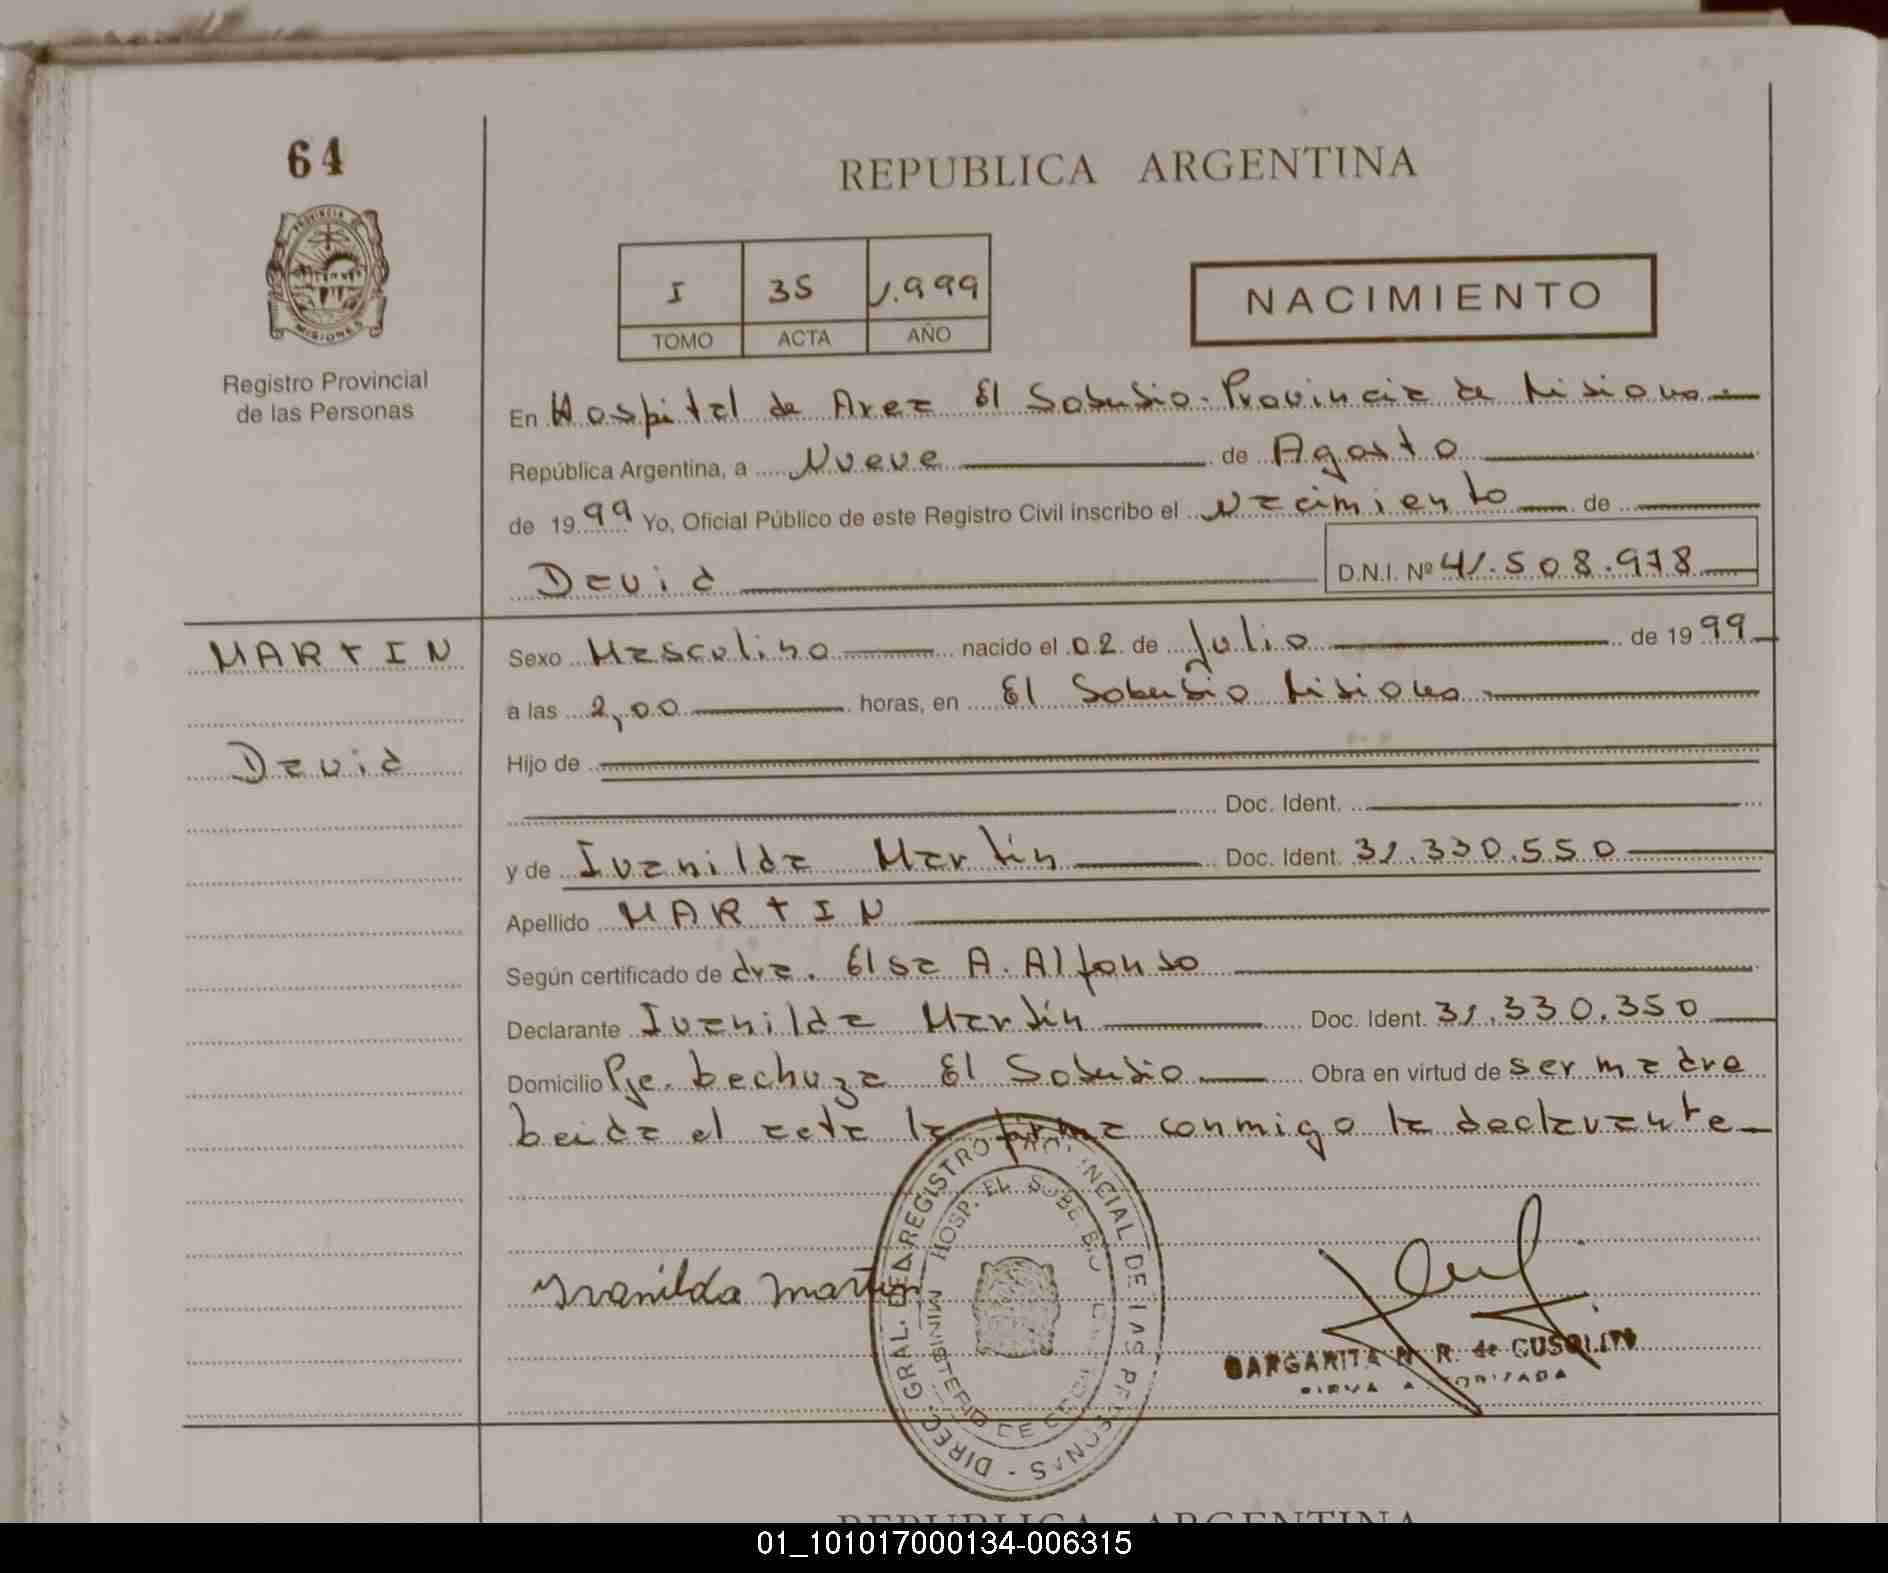 64
REPUBLICA ARGENTINA
PROVINCIA DE
MISIONES
Registro Provincial
de las Personas
I 35 1.999
TOMO ACTA AÑO
NACIMIENTO
En Hospital de Area El Soberbio - Provincia de Misiones
República Argentina, a Nueve de Agosto
de 1999 Yo, Oficial Público de este Registro Civil inscribo el Nacimiento de
David D.N.I. Nº 41.508.978
MARTIN
David
Sexo Masculino nacido el 02 de Julio de 1999
a las 2,00 horas, en El Soberbio Misiones
Hijo de
Doc. Ident.
y de Ivanilda Martín Doc. Ident. 31.330.550
Apellido MARTIN
Según certificado de dra. Elsa A. Alfonso
Declarante Ivanilda Martín Doc. Ident. 31.330.350
Domicilio Pje. Lechuza El Soberbio Obra en virtud de ser madre
Leida el acta la firma conmigo la declarante
DIREC. GRAL. DEL REGISTRO PROVINCIAL DE LAS PERSONAS -
HOSP. EL SOBERBIO
MINISTERIO DE
Ivanilda Martin
MARGARITA R. de CUSOLITO
FIRMA AUTORIZADA
REPUBLICA ARGENTINA
01_101017000134-006315